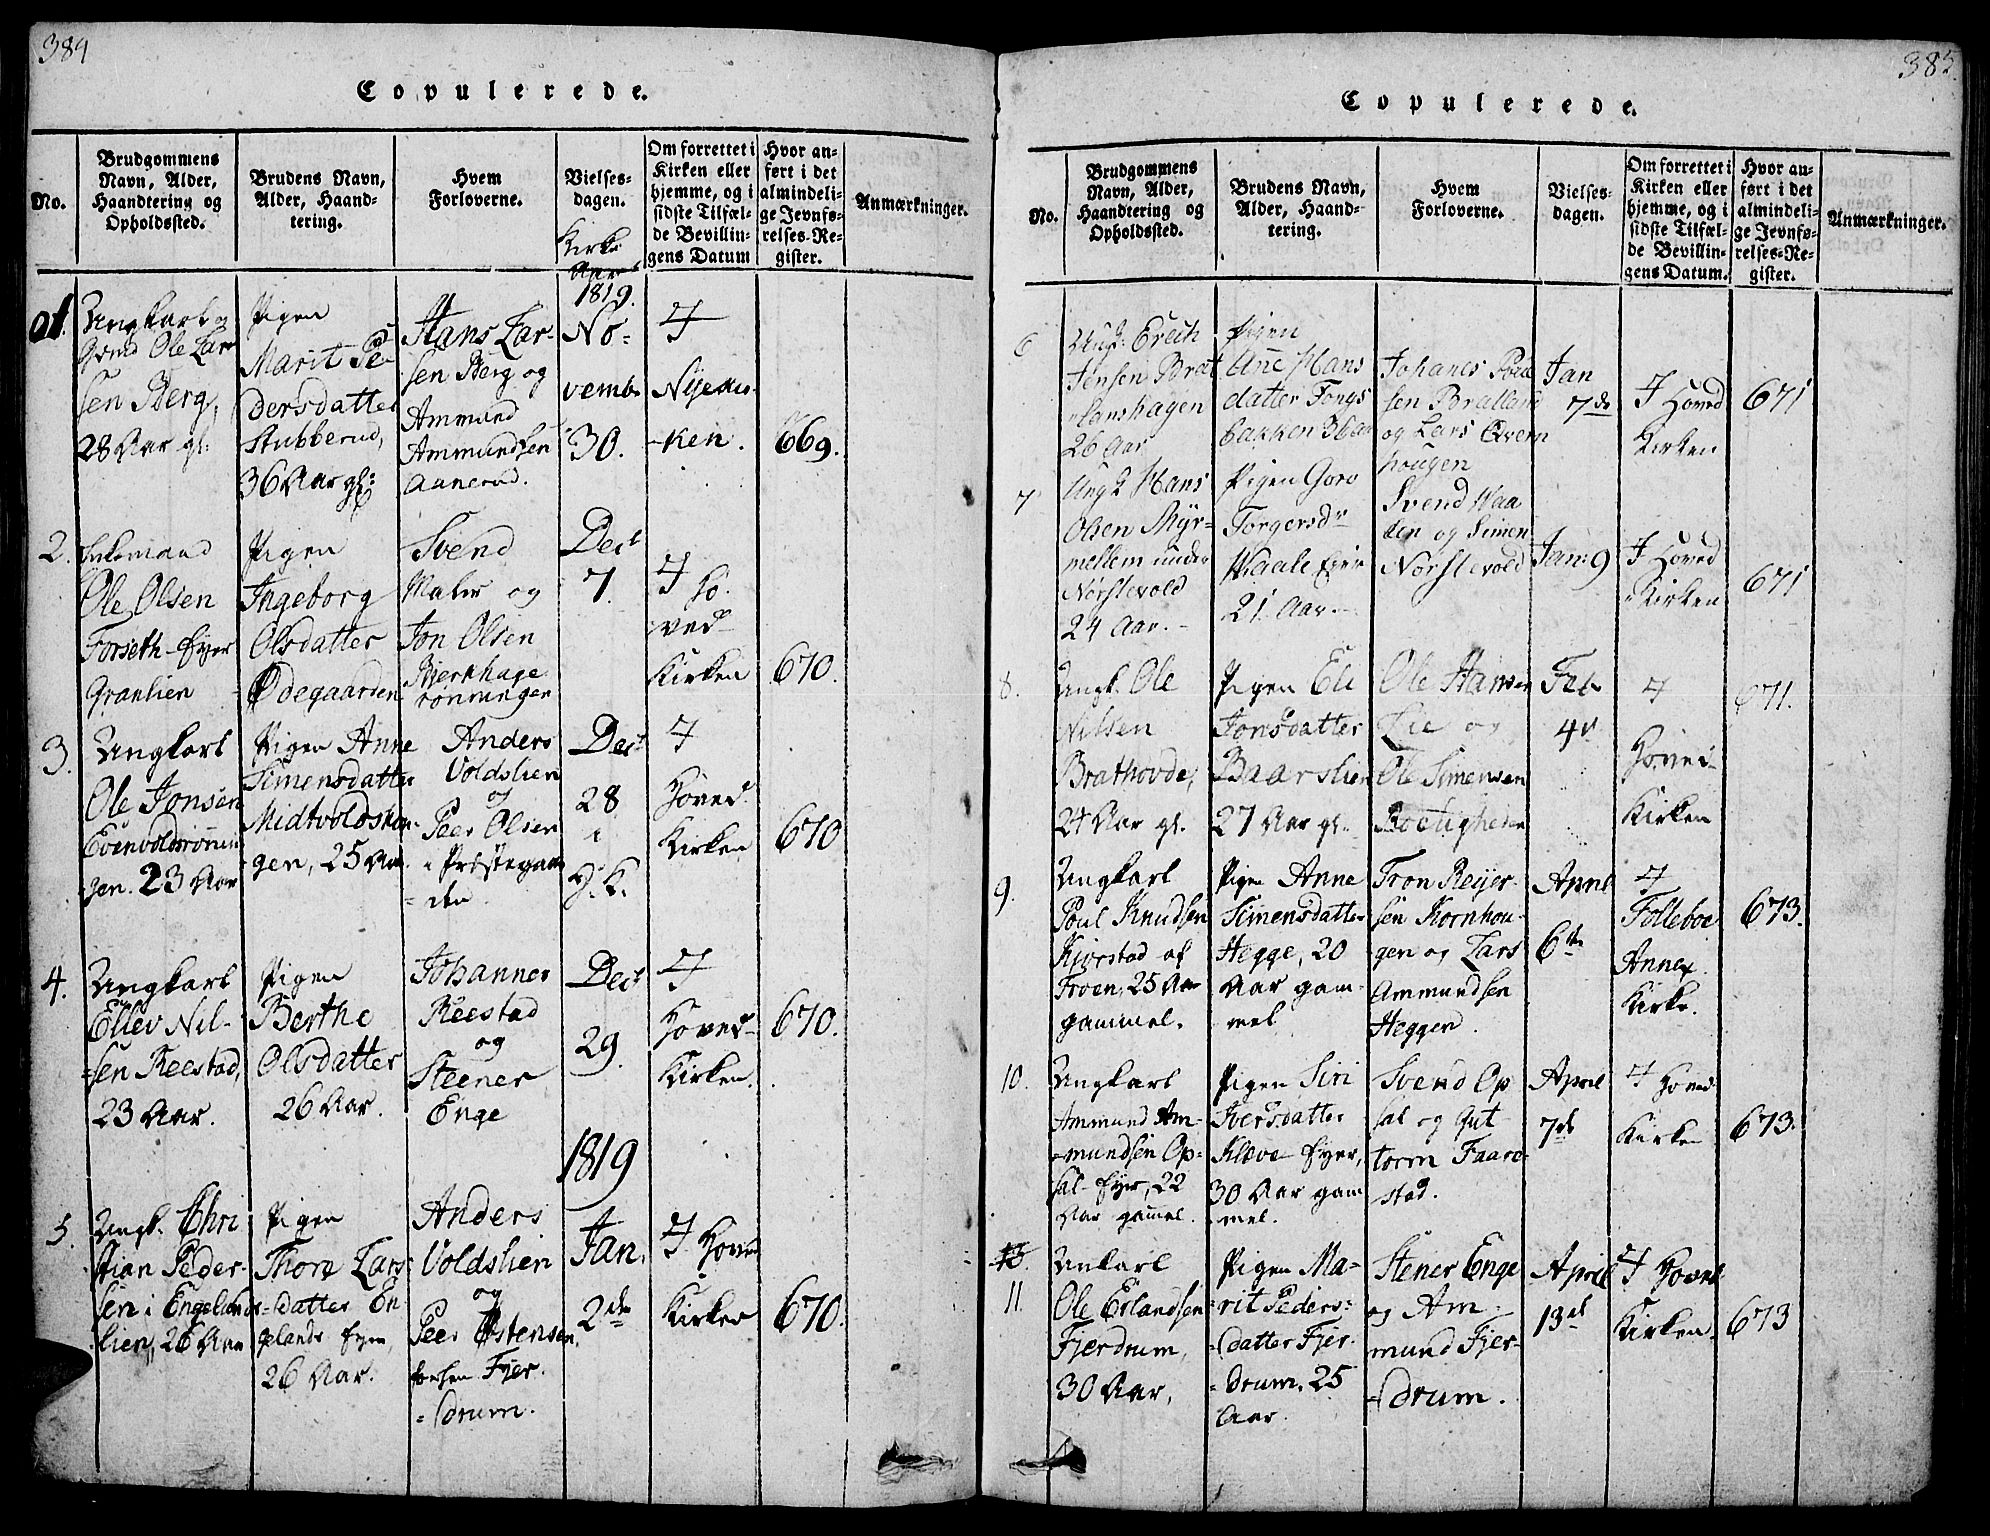 384
Copulerede.
No.
Brudgommens
Navn, Alder,
Haandtering og
Opholdssted.
Brudens Navn,
Alder, Haand-
tering.
Hvem
Forloverne.
Vielses-
dagen.
Kirke
Aaret
1819.
Om forrettet i
Kirken eller
hjemme, og i
sidste Tilfæl-
de Bevillin-
gens Datum
Hvor an-
ført i det
almindeli-
ge Jevnfø-
relses-Re-
gister.
Anmærkninger.
1.
Ungkarl og
Gvmd Ole Lar
sen Berg,
28 Aar gl:
Pigen
Marit Pe-
dersdatter
Stubberud,
36 Aar gl:
Hans Lar-
sen Berg og
Ammond
Ammundsen
Aanerud.
No-
vemb.
30.
I
-ken.
669.
2.
Enkemand
Ole Olsen
Forseth-Ejer
Granlien
Pigen
Ingeborg
Olsdatter
Ødegaarden
Svend
Maler og
Jon Olsen
Bjerkhage
rönningen
Dec
7.
I
Ho-
ved-
Kirken
670.
3.
Ungkarl
Ole Jonsen
gen. 23 Aar
Pigen Anne
Simensdatter
Midtvoldshou-
gen, 25 Aar.
Anders
Voldslien
og
Peer Olsen
i Præstegaar
-den.
Dec
28
i
H. K.
I
Hoved
Kirken
670
4.
Ungkarl
Ellev Nil-
-sen Reestad,
23 Aar.
Pigen
Berthe
Olsdatter
26 Aar.
Johannes
Reestad
og
Steener
Enge
Dec
29.
I
Hoved-
Kirken.
670.
1819
5.
Ungk. Chri
stian Peder-
sen i Engelands-
lien, 26 Aar
Pigen
Thore Lars
-datter En
gelands Ejen
26 Aar.
Anders
Voldslien
og
Peer Østensen
Fjer-
-drum.
Jan.
2den
I Hoved
Kirken
670.
385.
Copulerede.
No.
Brudgommens
Navn, Alder,
Haandtering og
Opholdssted.
Brudens Navn,
Alder, Haand-
tering.
Hvem
Forloverne.
Vielses-
dagen.
Om forrettet i
Kirken eller
hjemme, og i
sidste Tilfæl-
de Bevillin-
gens Datum.
Hvor an-
ført i det
almindeli-
ge Jevnfø-
relses-Re-
gister.
Anmærkninger.
6
Ungk: Erich
Jensen Brat
-lanshagen
26 Aar
Pigen
Ane Hans
datter Fongs
bakken 36 aar
Johanes Poul
sen Bratland
og Lars Qvern
hougen
Jan
7de
I Hoved
Kirken
671
7
Ungk Hans
Olsen Myr-
mellem under
Nörstevold
24 Aar. -
Pigen Goro
Torgersdr
Waale Ejer
21 Aar. -
Svend Waa
den og Simen
Norstevold
Jan: 9
I Hoved
-Kirken
671
8.
Ungk. Ole
Nilsen
Brathovde,
24 Aar gl.
Pigen Eli
Jonsdatter
Baarslien
27 Aar gl.
Ole Hansen
Lie og
Ole Simensen
Feb
4d
I
Hoved-
Kirken
671.
9.
Ungkarl
Poul Knudsen
Kjorstad af
Froen, 25 Aar
gammel.
Pigen Anne
Simensdatter
Hegge, 20
Aar gam-
mel
Tron Reijer-
sen Kornhou-
gen og Lars
Ammundsen
Heggen.
April
6te
I
Folleboe
Annex
Kirke.
673.
10.
Ungkarl
Ammund Am-
-mundsen Op-
sal-Ejer, 22
Aar gamel.
Pigen Siri
Iversdatter
Kleve Ejer,
30 Aar gam
-mel.
Svend Op
sal og Gut
torm Faare
stad.
April
7de
I Hoved
Kirke
673.
11.
Unkarl
Ole Erlandsen
Fjerdrum,
30 Aar,
Pigen Ma-
-rit Peders-
-datter Fjer-
-drum, 25
Aar.
Stener Enge
og Am-
mund Fjer-
-drum.
April
13de
I Hoved
Kirken.
673